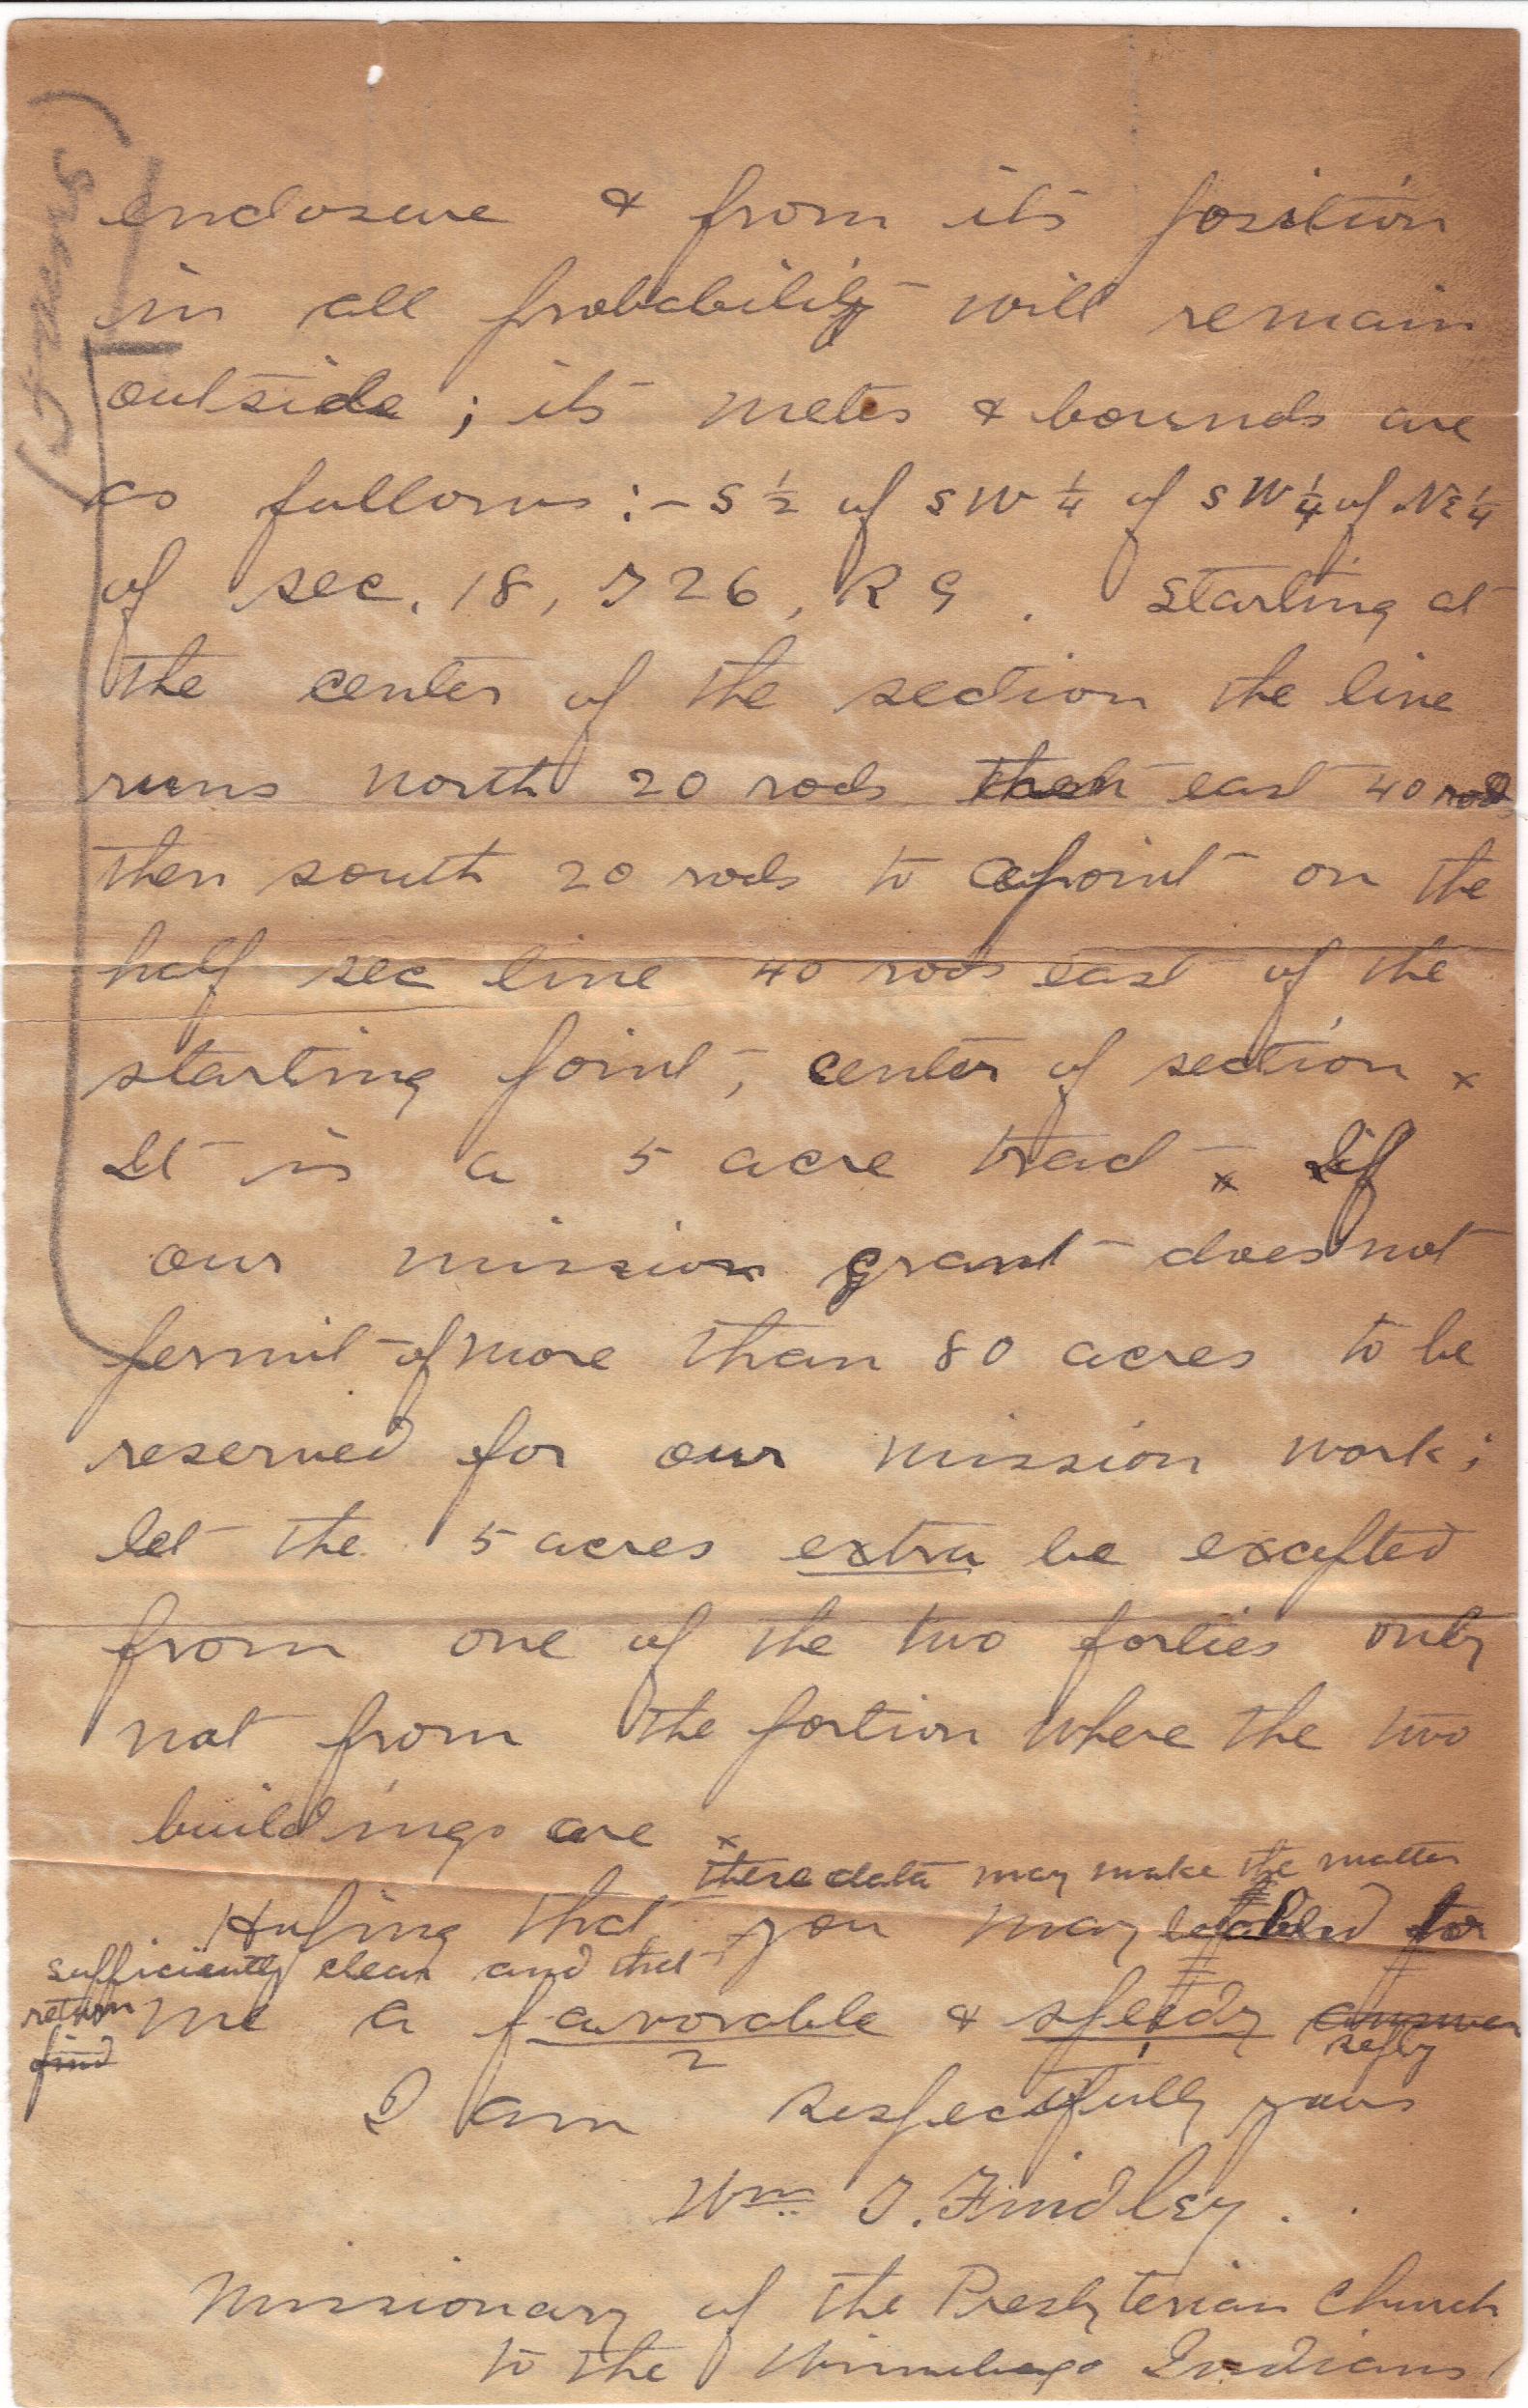 enclosure & from its position
in all probability will remain
outside; its metes & bounds are
as follows:- S ½ of SW ¼ of SW ¼ of NE ¼
of sec. 18, T 26, R 9. Starting at
the center of the section the line
runs north 20 rods then east 40 rods
then south 20 rods to a point on the
half sec line 40 rods east of the
starting point, center of section x
It is a 5 acre tract x If
our mission grant does not
permit of more than 80 acres to be
reserved for our mission work;
let the 5 acres extra be excepted
from one of the two forties only
not from the portion where the two
buildings are x
these data may make the matter
Hoping that you may be able to
sufficiently clear and that
return me a favorable & speedy answer
find reply
2 1
I am respectfully yours
Wm T. Findley.
Missionary of the Presbyterian Church
to the Winnebago Indians